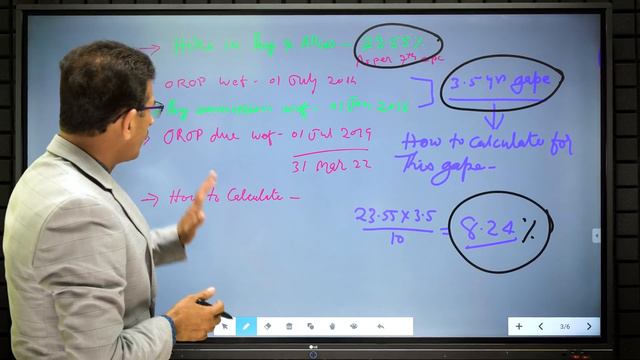 → Hike in Pay & Allces - 23.55%
As per 7th cpc
OROP wef - 01 July 2014
3.5 yr gape
Pay commission wef - 01 Jan 2016
→ OROP due wef - 01 Jul 2019
31 Mar 22
How to calculate for
This gape -
→ How to Calculate -
23.55 x 3.5
10
= 8.24 %
3/6
LG